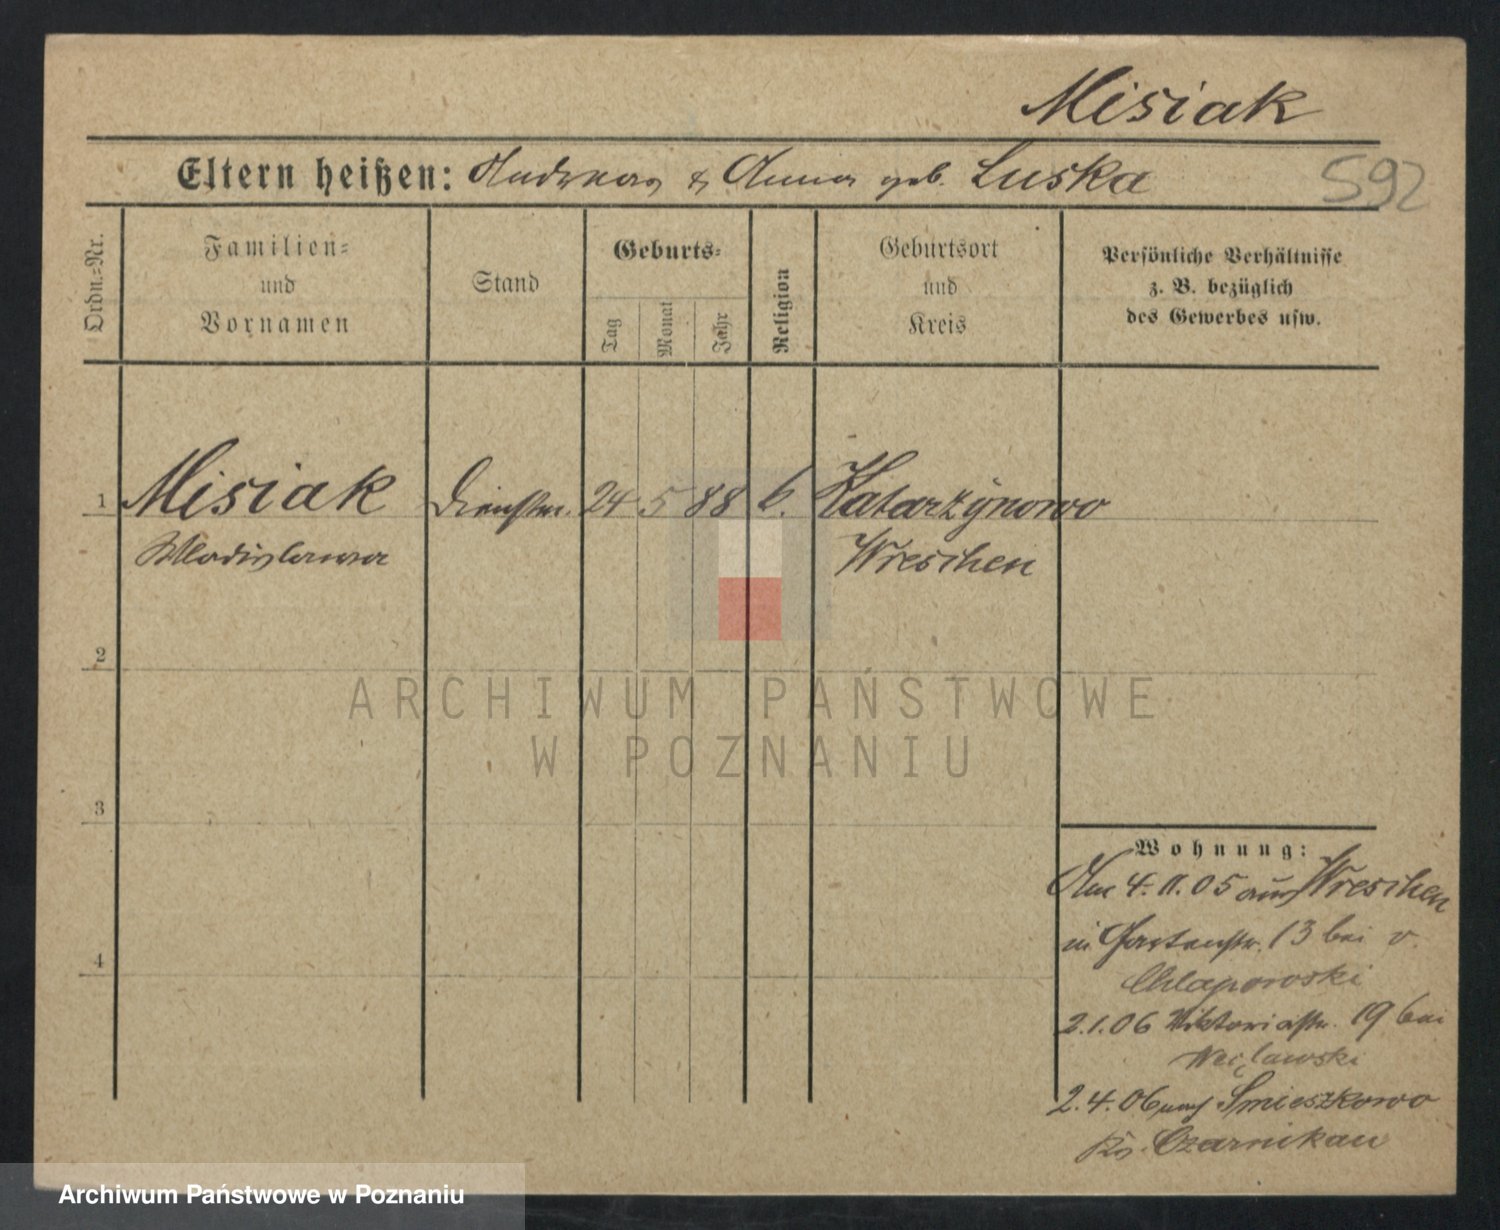 Misiak
Eltern heißen: Andreas & Anna geb. Luska
592
Ordn.-Nr.
Familien- und Vornamen
Stand
Geburts-
Tag
Monat
Jahr
Religion
Geburtsort und Kreis
Persönliche Verhältnisse
z. B. bezüglich
des Gewerbes usw.
1 Misiak Dienstm. 24 5 88 k. Katarzynowo
Wladislawa Wreschen
2
3
4
Wohnung:
Am 4. 11. 05 aus Wreschen
in Gartenstr. 13 bei v.
Chlapowski
2.1.06 Viktoriastr. 19 bei
Węclawski
2.4.06 nach Smieszkowo
Kr. Czarnikau
ARCHIWUM PAŃSTWOWE
W POZNANIU
Archiwum Państwowe w Poznaniu